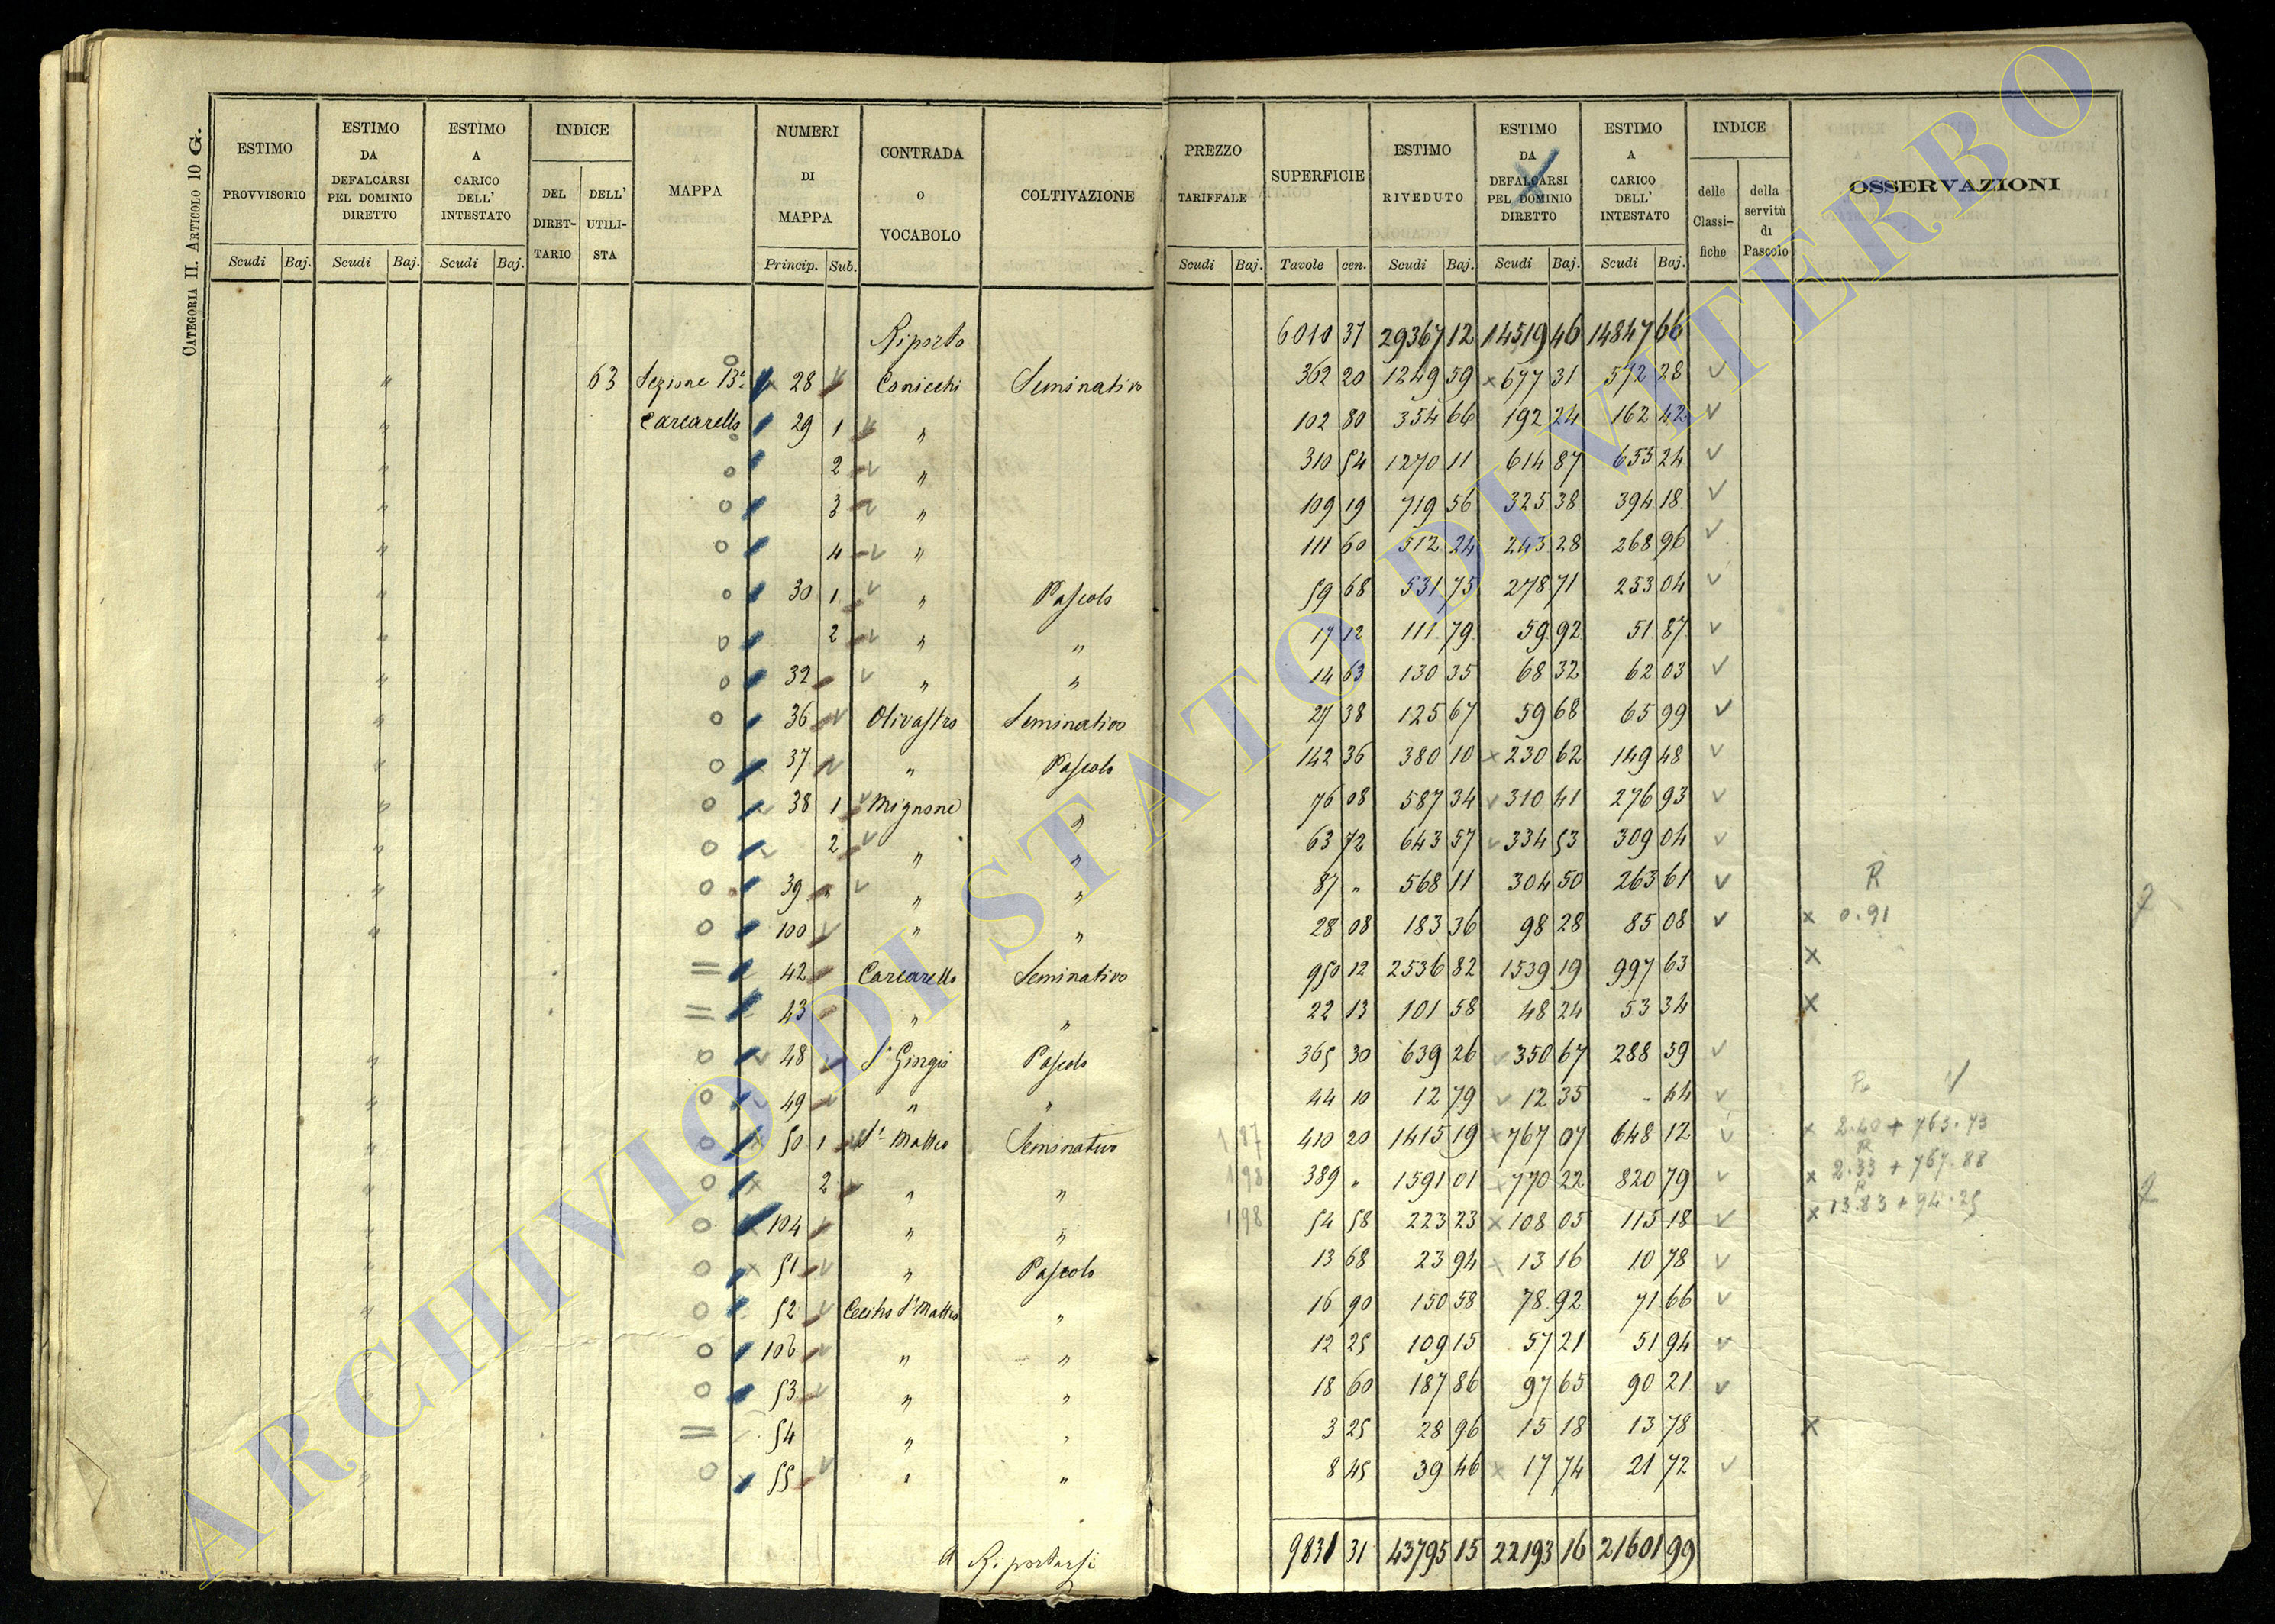 CATEGORIA II. ARTICOLO 10 G.
ESTIMO PROVVISORIO | ESTIMO DA DEFALCARSI PEL DOMINIO DIRETTO | ESTIMO A CARICO DELL' INTESTATO | INDICE DEL DIRETTARIO | DELL' UTILISTA | MAPPA | NUMERI DI MAPPA | CONTRADA O VOCABOLO | COLTIVAZIONE | PREZZO TARIFFALE | SUPERFICIE | ESTIMO RIVEDUTO | ESTIMO DA DEFALCARSI PEL DOMINIO DIRETTO | ESTIMO A CARICO DELL' INTESTATO | INDICE delle Classifiche | della servitù di Pascolo | OSSERVAZIONI
Scudi Baj. Scudi Baj. Scudi Baj. Princip. Sub. Scudi Baj. Tavole cen. Scudi Baj. Scudi Baj. Scudi Baj.
Riporto 6010 31 29367 12 14519 46 14847 66
" 63 Sezione 13ª 28 Conicchi Seminativo 362 20 1249 59 677 31 572 28
" Carcarello 29 1 " 102 80 354 66 192 24 162 42
" 2 " 310 54 1270 11 614 87 655 24
" 3 " 109 19 719 56 325 38 394 18
" 4 " 111 60 512 24 243 28 268 96
" 30 1 " Pascolo 59 68 531 75 278 71 253 04
" 2 " " 17 12 111 79 59 92 51 87
" 32 " " 14 63 130 35 68 32 62 03
" 36 Olivastro Seminativo 27 38 125 67 59 68 65 99
" 37 " Pascolo 142 36 380 10 230 62 149 48
" 38 1 Mignone " 76 08 587 34 310 41 276 93
" 2 " " 63 72 643 57 334 53 309 04
" 39 " " 87 " 568 11 304 50 263 61 R
" 100 " " 28 08 183 36 98 28 85 08 × 0.91
42 Carcarello Seminativo 950 12 2536 82 1539 19 997 63 ×
43 " " 22 13 101 58 48 24 53 34 ×
" 48 S. Giorgio Pascolo 365 30 639 26 350 67 288 59
" 49 " " 44 10 12 79 12 35 " 44
" 50 1 S. Matteo Seminativo 1 87 410 20 1415 19 767 07 648 12 × 2.40 + 763.73
" 2 " " 1 98 389 " 1591 01 770 22 820 79 × 2.33 + 767.88
" 104 " " 1 98 54 58 223 23 108 05 115 18 × 13.83 + 94.25
" 51 " Pascolo 13 68 23 94 13 16 10 78
" 52 S. Matteo " 16 90 150 58 78 92 71 66
" 106 " " 12 25 109 15 57 21 51 94
" 53 " " 18 60 187 86 97 65 90 21
54 " " 3 25 28 96 15 18 13 78 ×
" 55 " " 8 45 39 46 17 74 21 72
A Riportarsi 9831 31 43795 15 22193 16 21601 99
ARCHIVIO DI STATO DI VITERBO